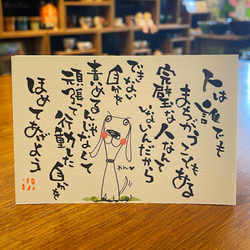 人は誰でも
まちがうこともある
完璧な人なんて
いないんだから
できない自分を
責めるんじゃなくて
頑張って行動した自分を
ほめてあげよう
わん